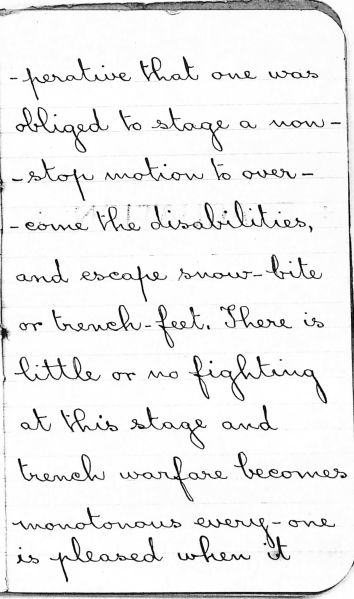 -perative that one was
obliged to stage a non-
-stop motion to over-
-come the disabilities,
and escape snow-bite
or trench-feet. There is
little or no fighting
at this stage and
trench warfare becomes
monotonous every-one
is pleased when it